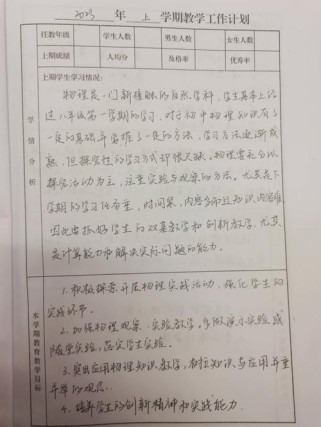 2023 年 上 学期教学工作计划
任教年级 学生人数 男生人数 女生人数
上期成绩 人均分 及格率 优秀率
上期学生学习情况:
学情分析
物理是一门新接触的自然学科,学生基本上经
过八年级第一学期的学习,对于初中物理知识有了
一定的基础并掌握了一定的方法,学习方法逐渐成
熟,但探究性的学习方式却很欠缺,物理要充分以
探究活动为主,注重实验与观察的方法。尤其是下
学期的学习任务重,时间紧,内容多而且知识内容难
因此要抓好学生的双基教学和创新教学,尤其
是计算能力和解决实际问题的能力。
本学期教育教学目标
1.积极探索开展物理实践活动,强化学生的
实践环节。
2.加强物理观察、实验教学,多做演示实验或
随堂实验,落实学生实验。
3.突出应用物理知识教学,树立知识与应用并重
并举的观念。
4.培养学生的创新精神和实践能力。